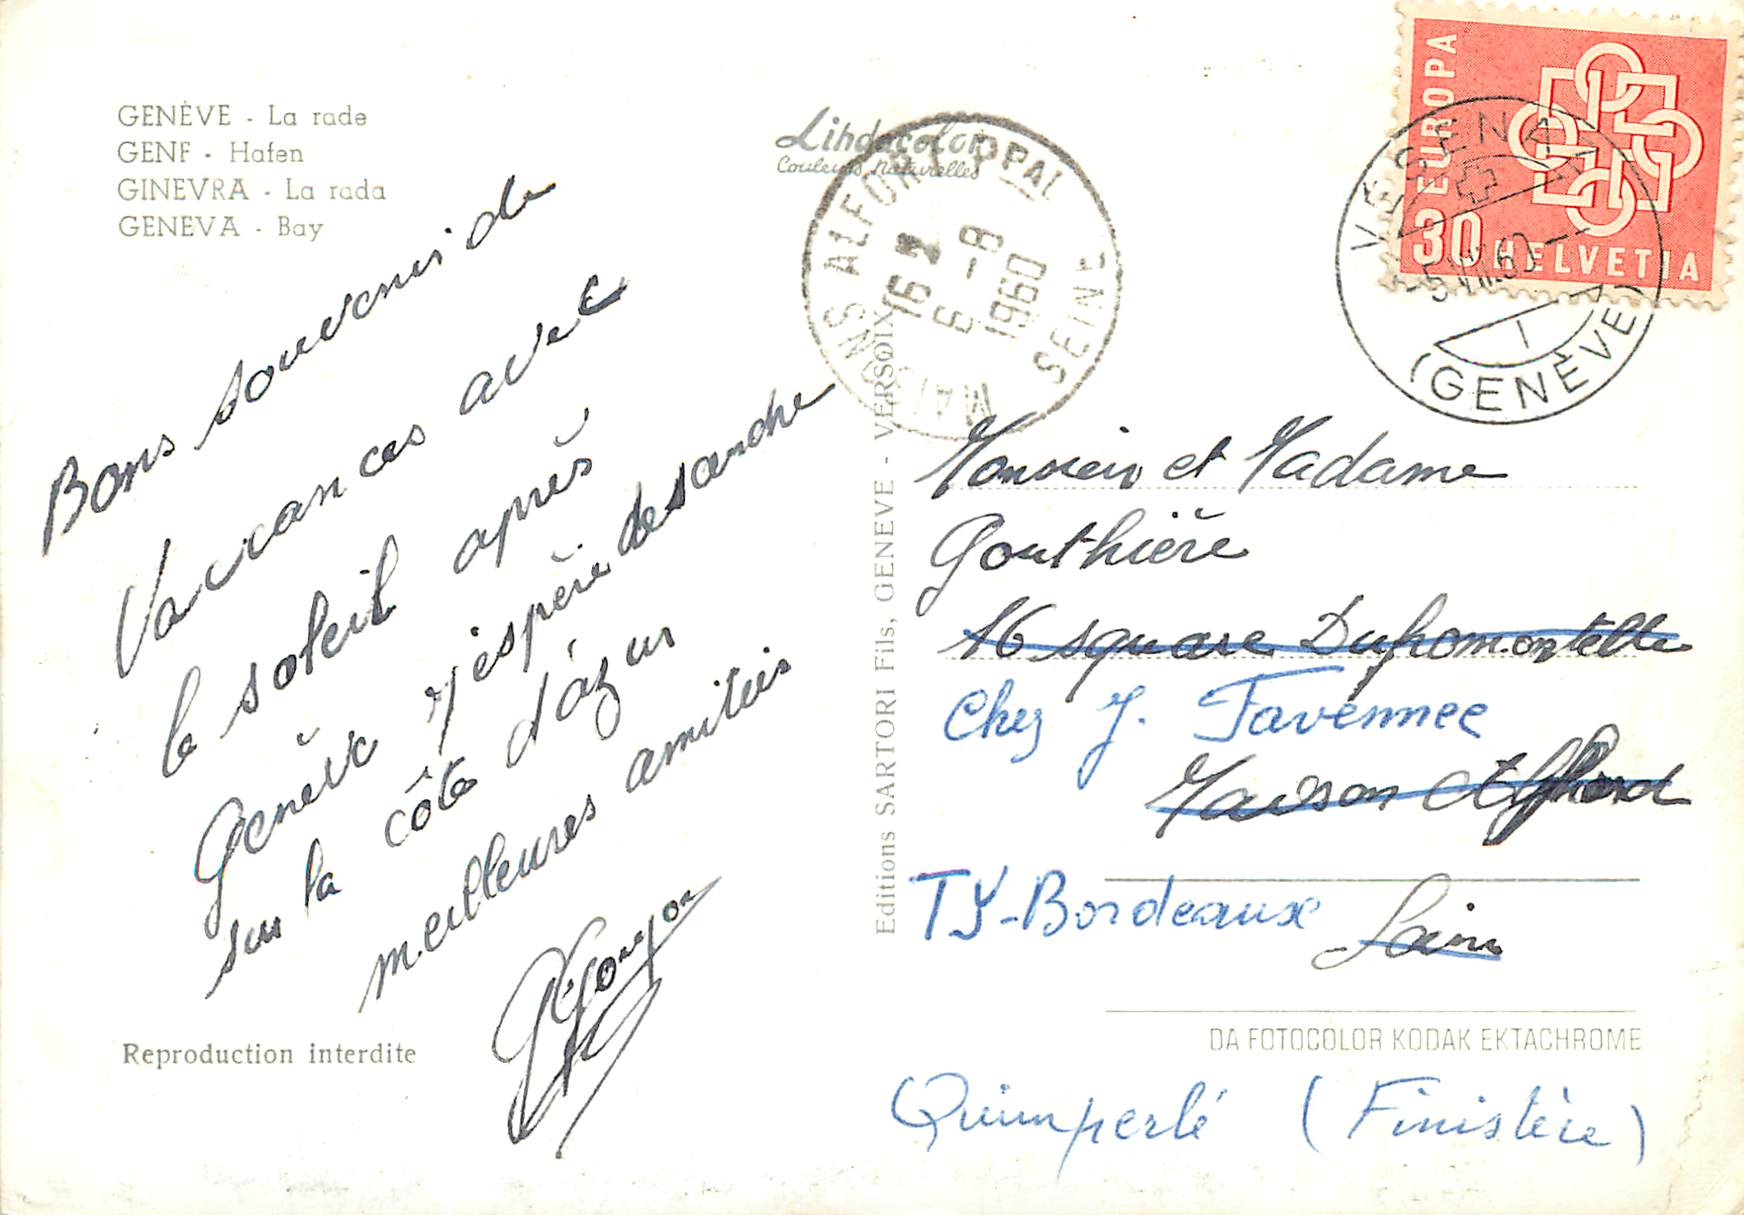 GENÈVE - La rade
GENF - Hafen
GINEVRA - La rada
GENEVA - Bay
Bons souvenirs de
Vacances avec
le soleil après
Genève j'espère descendre
sur la côte d'azur
meilleures amitiés
Reproduction interdite
Lindacolor
Couleurs Naturelles
Editions SARTORI Fils, GENEVE - VERSOIX
MAISONS ALFORT PPAL
16 H
6 - 8
1960
SEINE
EUROPA
30 HELVETIA
VÉSENAZ
-5.VIII.60--
1
(GENÈVE)
Monsieur et Madame
Gouthière
16 square Dufromontelle
Chez J. Tavennec
Maison Alford
TY-Bordeaux
Seine
DA FOTOCOLOR KODAK EKTACHROME
Quimperlé (Finistère)